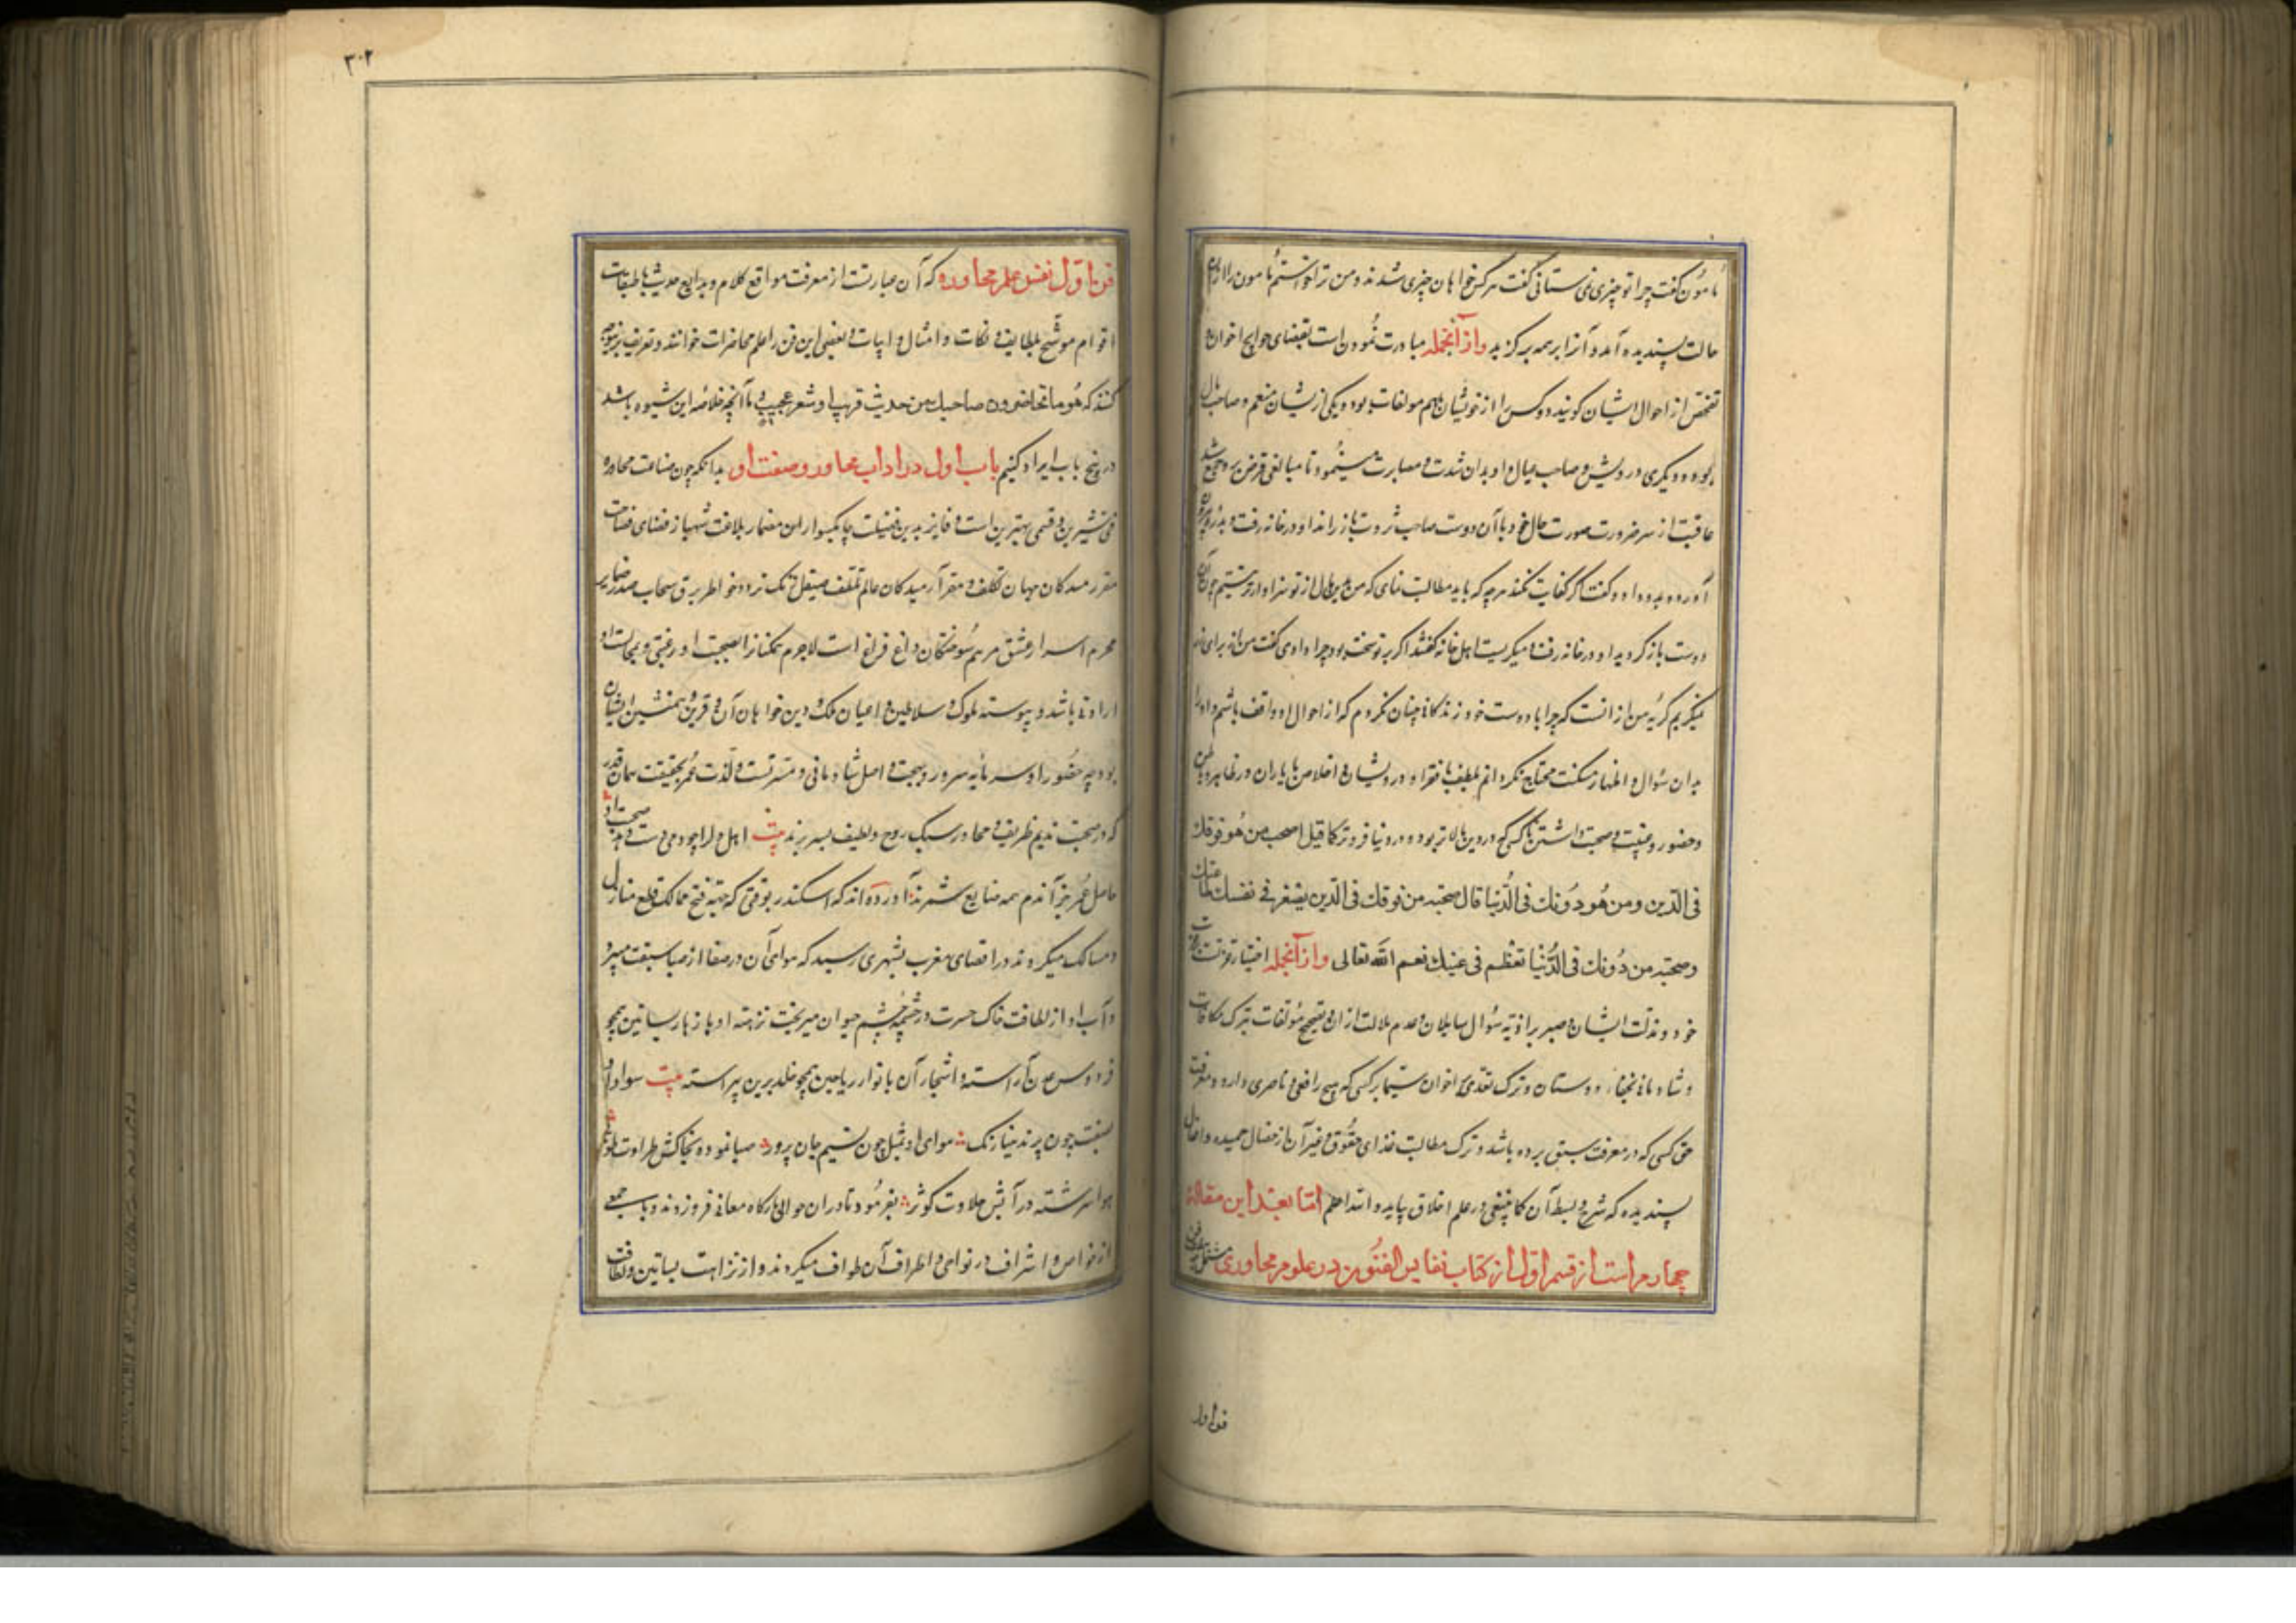 مامون گفت چرا تو چیزی نمی ستانی گفت هرکس خواهان چیزی شدند و من ترا خواستم مامون را از آن
حالت پسندیده آمد و آنرا بر همه برگزید وازآنجمله مبادرت نمودن است بقضای حوایج اخوان و
تفحص از احوال ایشان گویند دو کس را از خویشان باهم مولفات بود و یکی ازیشان منعم و صاحب مال
بود و دیگری درویش و صاحب عیال و او بدان شدت و معسرت تا مبالغی قرض برو جمع شد
عاقبت از سر ضرورت صورت حال خود با آن دوست صاحب ثروت باز راند او در خانه رفت و بدره بیرون
آورد و بدو داد و گفت اگر کفایت نکند هرچه که باید مطالبت نمای که من بدین مال از تو سزاوارتر نیستم چون آن
دوست باز گردید او در خانه رفت و میگریست اهل خانه گفتند اگر بر تو سخت بود چرا دادی گفت من نه برای آن
میگریم گریهٔ من از آنست که چرا با دوست خود زندگانی چنان نکردم که از احوال او واقف باشم و او را
بدان سؤال و اظهار مسکنت محتاج نگردانم لطف با فقرا و درویشان و اخلاص با یاران در ظاهر و باطن
و حضور و غیبت و صحبت داشتن با کسی که در دین بالاتر بود و در دنیا فروتر کما قیل اصحب من هو فوقك
فی الدین ومن هو دونك فی الدنیا قال صحبة من فوقك فی الدین یصغر فی نفسك طاعتك
وصحبة من دونك فی الدنیا تعظم فی عینك نعم الله تعالی وازآنجمله اختیار عزتست بر
خود و مذلت ایشان و صبر بر اذیه سؤال سایلان و عدم ملالت از آن و تصحیح مؤلفات بترک مکافات
و شادمانی بجفاء دوستان و ترک تعدی اخوان سیما بر کسی که هیچ رافعی و ناصری ندارد و معرفت
حق کسی که در معرفت سبق برده باشد و ترک مطالبت حقوق و غیر آن از خصال حمیده و افعال
پسندیده که شرح و بسط آن کما ینبغی در علم اخلاق بیاید والله اعلم اما بعد این مقالهٔ
چهارم است از قسم اول از کتاب نفایس الفنون در علوم محاوری مشتمل بر
فن اول
۳۰۲
فن اول نفس علم محاوره که آن عبارتست از معرفت مواقع کلام و بدایع حدیث با طبقات
اقوام موشح بلطایف و نکات و امثال و ابیات و بعضی این فن را علم محاضرات خوانند و تعریف
کنند که هو ما تحاضر ون صاحبك من حدیث قریب او شعر عجیب و ما آنچه خلاصه این شیوه باشد
در پنج باب ایراد کنیم باب اول در اداب محاور و صفت او بدانکه چون صناعت محاوره
فنی شیرین و قسمی بهترین است و فایز بدین فضیلت چابکسوار این مضمار بلاغت شهباز فضای فصاحت
محرم اسرار عشق مرهم سوختگان داغ فراغ است لاجرم همگنانرا بصحبت او رغبتی و بمجالست او
ارادتی باشد و پیوسته ملوک و سلاطین و اعیان ملک و دین خواهان آن و قرین و همنشین ایشان
بود چه حضور او سرمایه سرور و بهجت و اصل شادمانی و مسرتست و لذت عمر بحقیقت همان قدر
که در صحبت ندیم ظریف و محاور سبک روح و لطیف بسر برند بیت اهل دل را چو دمی دست دهد صحبت او
حاصل عمر جز آندم همه ضایع شمرند آورده اند که اسکندر بوقتی که جهت فتح ممالک قطع منازل
و مسالک میکرد در اقصای مغرب بشهری رسید که هوای آن در صفا از صبا سبقت میبرد
و آب او از لطافت خاک حسرت در چشمه چشم حیوان میریخت نزهت او با ازهار بساتین همچو
فردوس عدن آراسته و اشجار آن بانوار ریاحین همچو خلد برین پیراسته بیت سواد او
بصفت چون پرند مینا رنگ هوای او بمثل چون نسیم جان پرور صبا نموده بخاکش طراوت طوبی
هوا سرشته در آبش حلاوت کوثر بفرمود تا در آن حوالی بارگاه معانی فرو زدند و با جمعی
از خواص و اشراف در نواحی و اطراف آن طواف میکردند و از نزاهت بساتین و لطافت